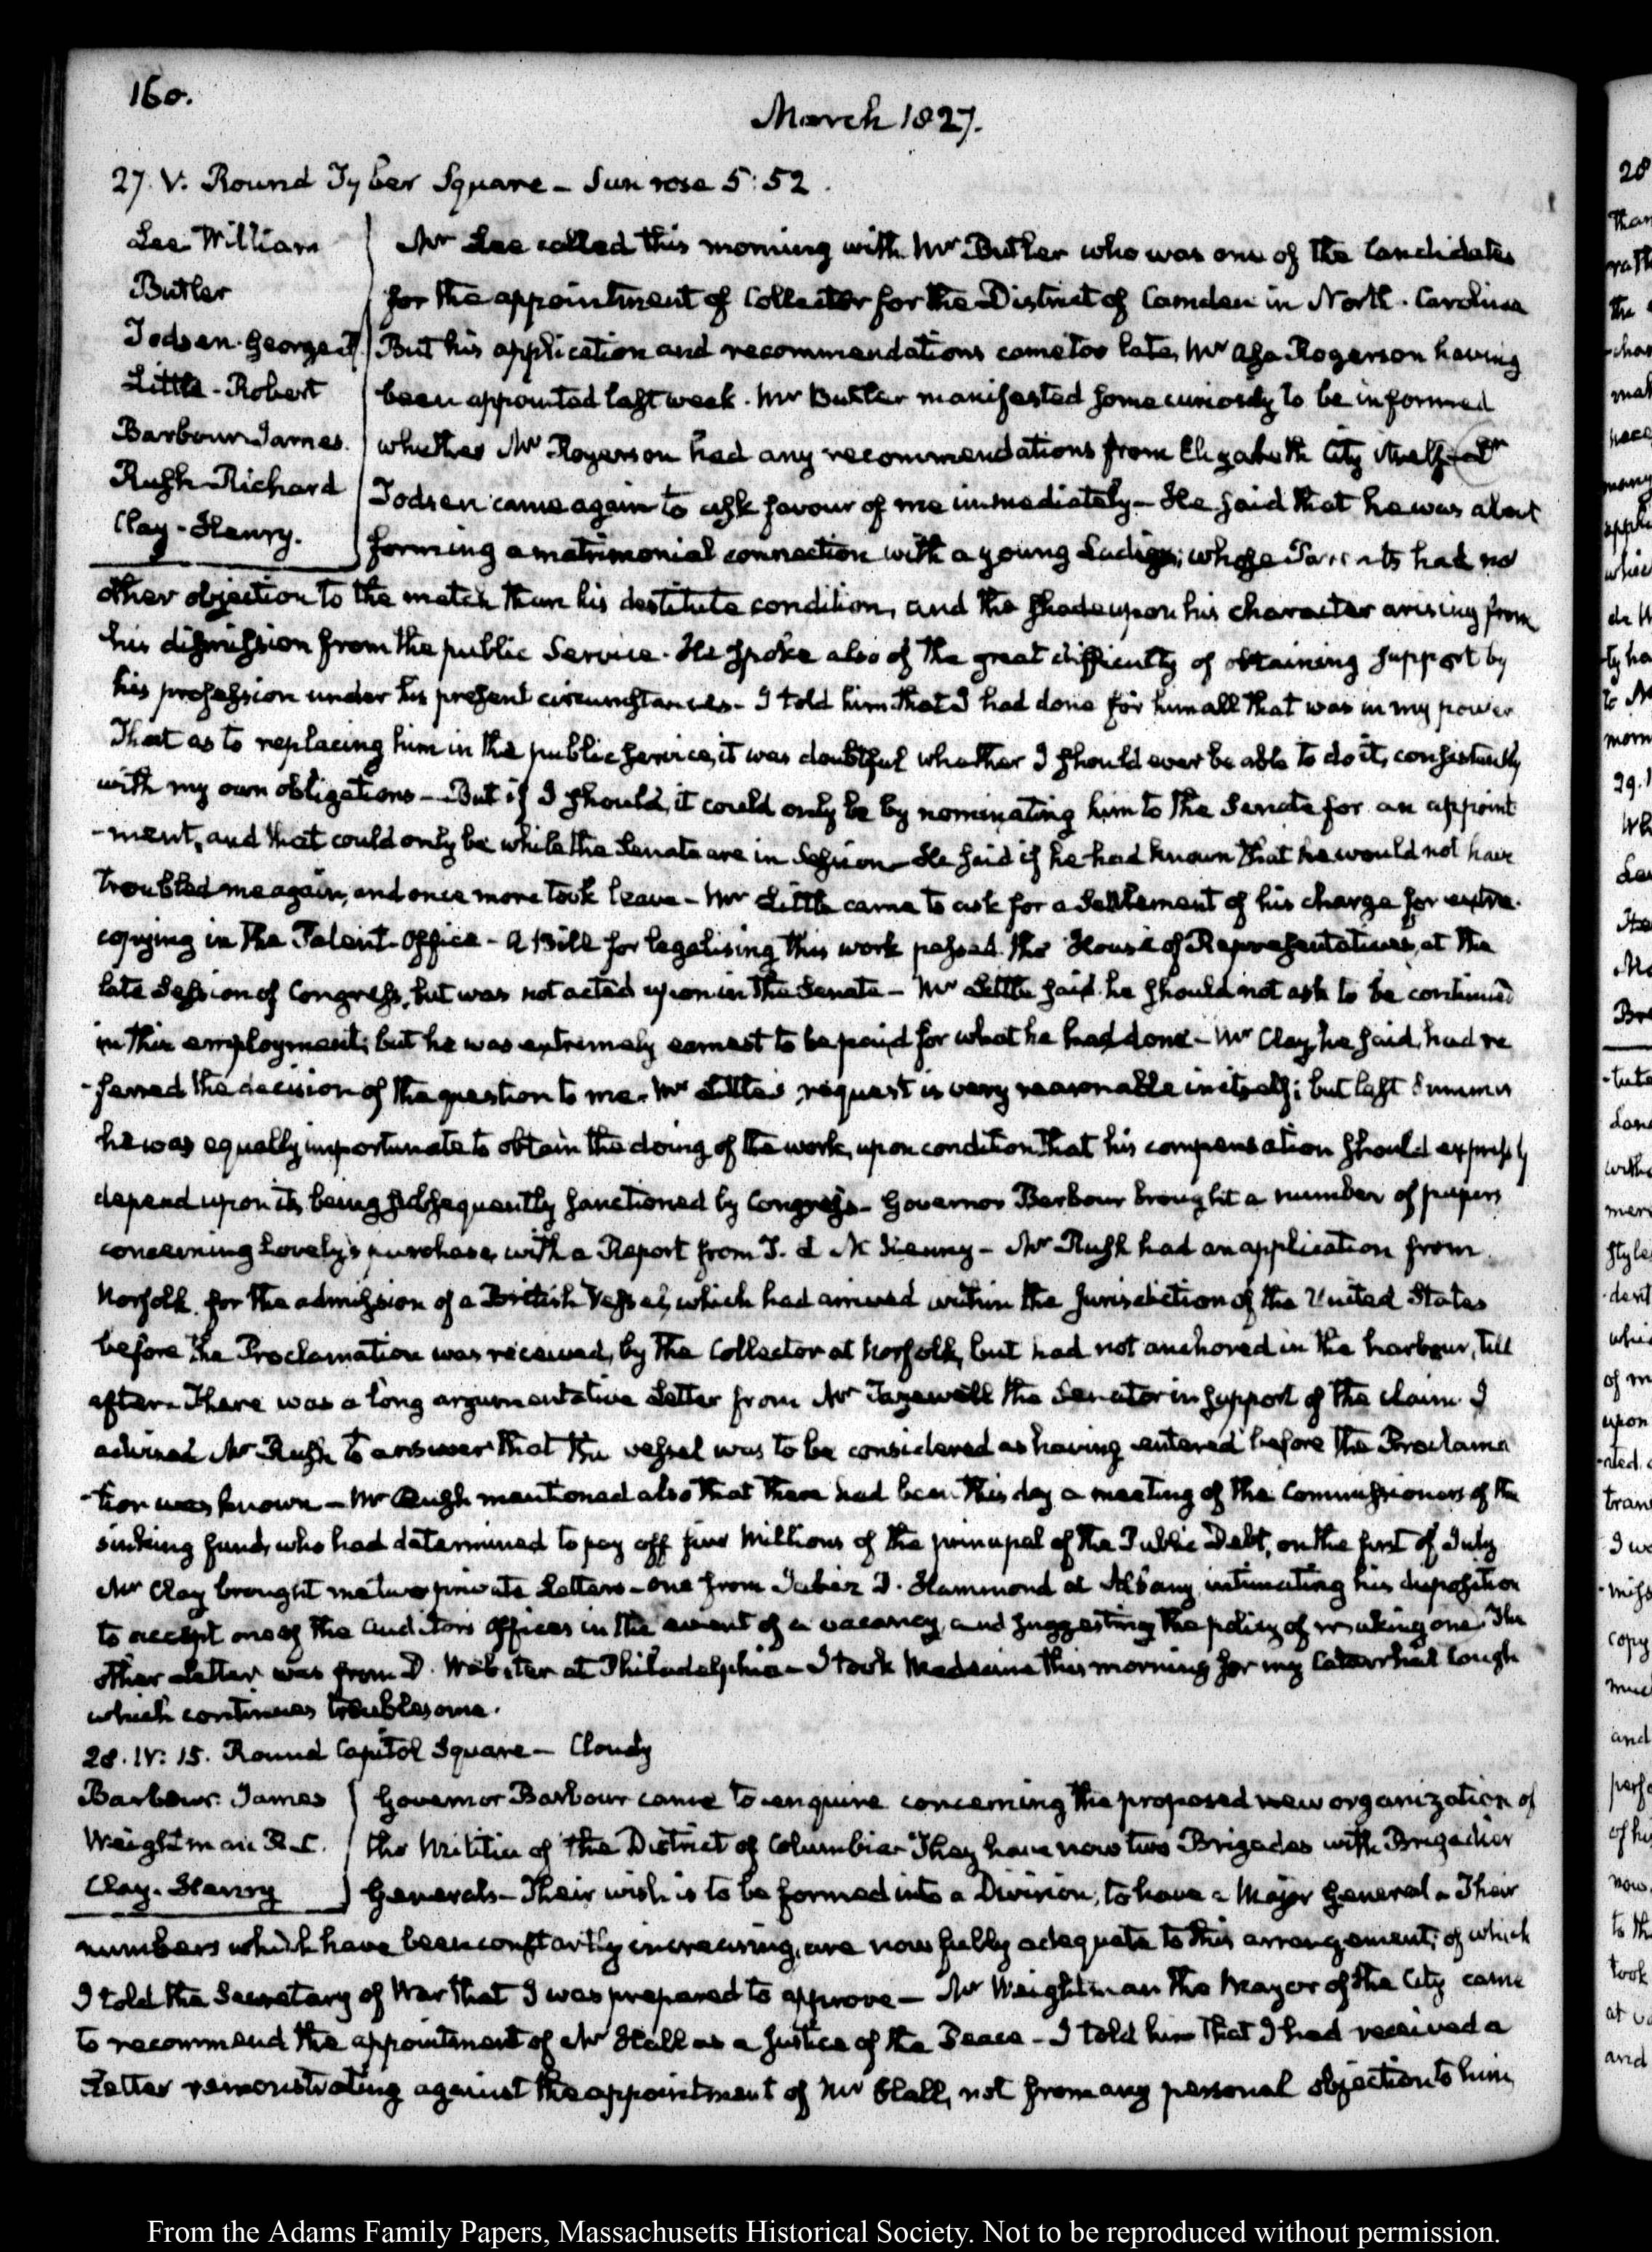 160.
March 1827.
27. V. Round Tyber Square – Sun rose 5:52.
Lee William
Butler
Todsen George P.
Little – Robert
Barbour James.
Rush Richard
Clay – Henry.
Mr Lee called this morning with Mr Butler who was one of the Candidates
for the appointment of Collector for the District of Camden in North-Carolina
But his application and recommendations came too late, Mr Asa Rogerson having
been appointed last week. Mr Butler manifested some curiosity to be informed
whether Mr Rogerson had any recommendations from Elizabeth City itself – Dr
Todsen came again to ask favour of me immediately – He said that he was about
forming a matrimonial connection with a young Lady; whose Parents had no
other objection to the match than his destitute condition, and the shade upon his character arising from
his dismission from the public Service. He spoke also of the great difficulty of obtaining support by
his profession under his present circumstances – I told him that I had done for him all that was in my power
That as to replacing him in the public service, it was doubtful whether I should ever be able to do it, consistently
with my own obligations – But if I should, it could only be by nominating him to the Senate for an appoint
-ment, and that could only be while the Senate are in Session – He said if he had known that he would not have
troubled me again, and once more took leave – Mr Little came to ask for a Settlement of his charge for extra
copying in the Patent Office – A Bill for legalising this work passed the House of Representatives, at the
late Session of Congress, but was not acted upon in the Senate – Mr Little said he should not ask to be continued
in this employment; but he was extremely earnest to be paid for what he had done – Mr Clay, he said, had re
-ferred the decision of the question to me. Mr Little's request is very reasonable in itself; but last Summer
he was equally importunate to obtain the doing of the work, upon condition that his compensation should expressly
depend upon its being subsequently sanctioned by Congress – Governor Barbour brought a number of papers
concerning Lovely's purchase, with a Report from T. L McKenney – Mr Rush had an application from
Norfolk for the admission of a British Vessel, which had arrived within the Jurisdiction of the United States
before the Proclamation was received, by the Collector at Norfolk, but had not anchored in the harbour, till
after – There was a long argumentative Letter from Mr Tazewell the Senator in support of the claim. I
advised Mr Rush to answer that the vessel was to be considered as having entered before the Proclama
-tion was known – Mr Rush mentioned also that there had been this day a meeting of the Commissioners of the
sinking fund, who had determined to pay off five Millions of the principal of the Public Debt, on the first of July
Mr Clay brought me two private Letters – one from Jabez D. Hammond at Albany, intimating his disposition
to accept one of the Auditors Offices in the event of a vacancy, and suggesting the policy of making one. The
other Letter was from D. Webster at Philadelphia – I took Medicine this morning for my Catarrhal Cough
which continues troublesome.
28. IV: 15. Round Capitol Square – Cloudy
Barbour. James
Weightman R. C.
Clay. Henry
Governor Barbour came to enquire concerning the proposed new organization of
the Militia of the District of Columbia – They have now two Brigades with Brigadier
Generals – Their wish is to be formed into a Division, to have a Major General – Their
numbers which have been constantly increasing, are now fully adequate to this arrangement; of which
I told the Secretary of War that I was prepared to approve – Mr Weightman the Mayor of the City came
to recommend the appointment of Mr Hall as a Justice of the Peace – I told him that I had received a
Letter remonstrating against the appointment of Mr Hall, not from any personal objection to him,
From the Adams Family Papers, Massachusetts Historical Society. Not to be reproduced without permission.